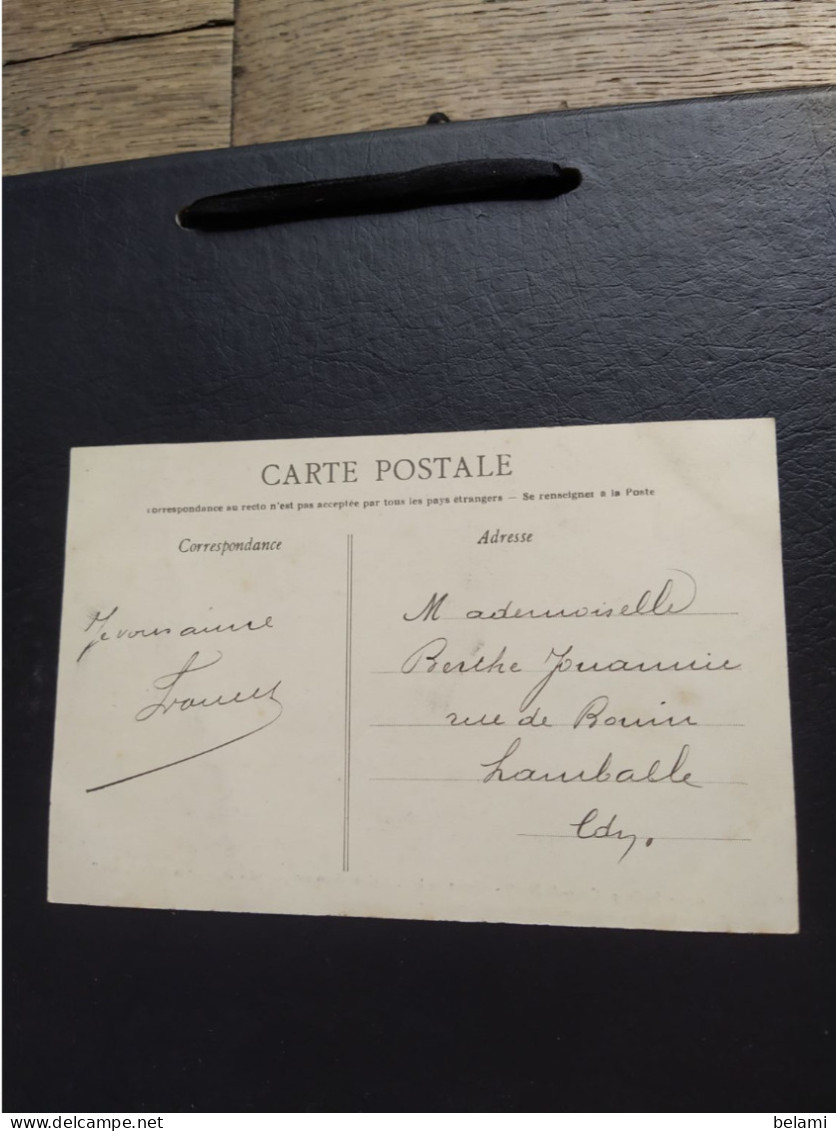 CARTE POSTALE
Correspondance au recto n'est pas acceptée par tous les pays étrangers — Se renseigner à la Poste
Correspondance
Adresse
Je vous aime
Mademoiselle
Berthe Jouannie
rue de Bouin
Lamballe
Cdn.
belami